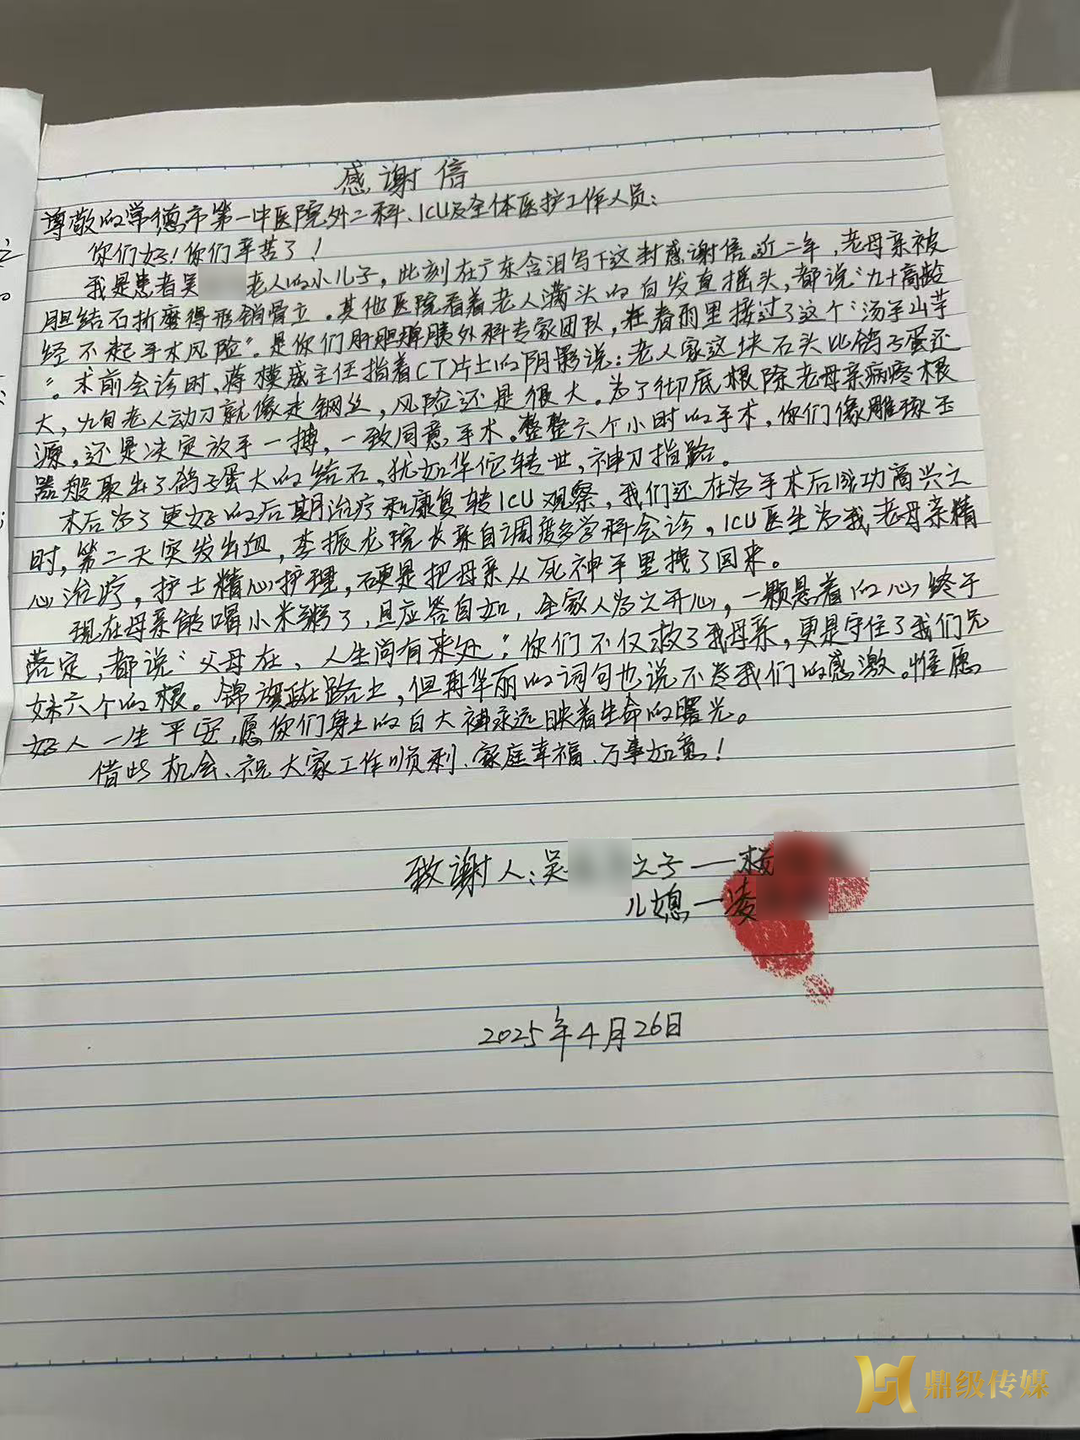 感谢信
尊敬的常德市第一中医院外二科、ICU及全体医护工作人员:
你们好!你们辛苦了!
我是患者吴 老人的小儿子,此刻在广东含泪写下这封感谢信。近二年,老母亲被
胆结石折磨得形销骨立。其他医院看着老人满头的白发直摇头,都说"九十高龄
经不起手术风险"。是你们肝胆脾胰外科专家团队,在春雨里接过了这个"汤手山芋
"。术前会诊时,蒋模成主任指着CT片上的阴影说:老人家这块石头比鸽子蛋还
大,九旬老人动刀就像走钢丝,风险还是很大。为了彻底根除老母亲病疼根
源,还是决定放手一搏,一致同意手术。整整六个小时的手术,你们像雕琢玉
器般取出了鸽子蛋大的结石,犹如华佗转世,神刀指路。
术后为了更好的后期治疗和康复转ICU观察,我们还在为手术后成功高兴之
时,第二天突发出血,李振龙院长亲自调度多学科会诊,ICU医生为我老母亲精
心治疗,护士精心护理,硬是把母亲从死神手里拽了回来。
现在母亲能喝小米粥了,且应答自如,全家人为之开心,一颗悬着的心终于
落定,都说"父母在,人生尚有来处":你们不仅救了我母亲,更是守住了我们兄
妹六个的根。锦旗在路上,但再华丽的词句也说不尽我们的感激。惟愿
好人一生平安,愿你们身上的白大褂永远映着生命的曙光。
借此机会、祝大家工作顺利、家庭幸福、万事如意!
致谢人:吴 之子一
儿媳一凌
2025年4月26日
鼎级传媒